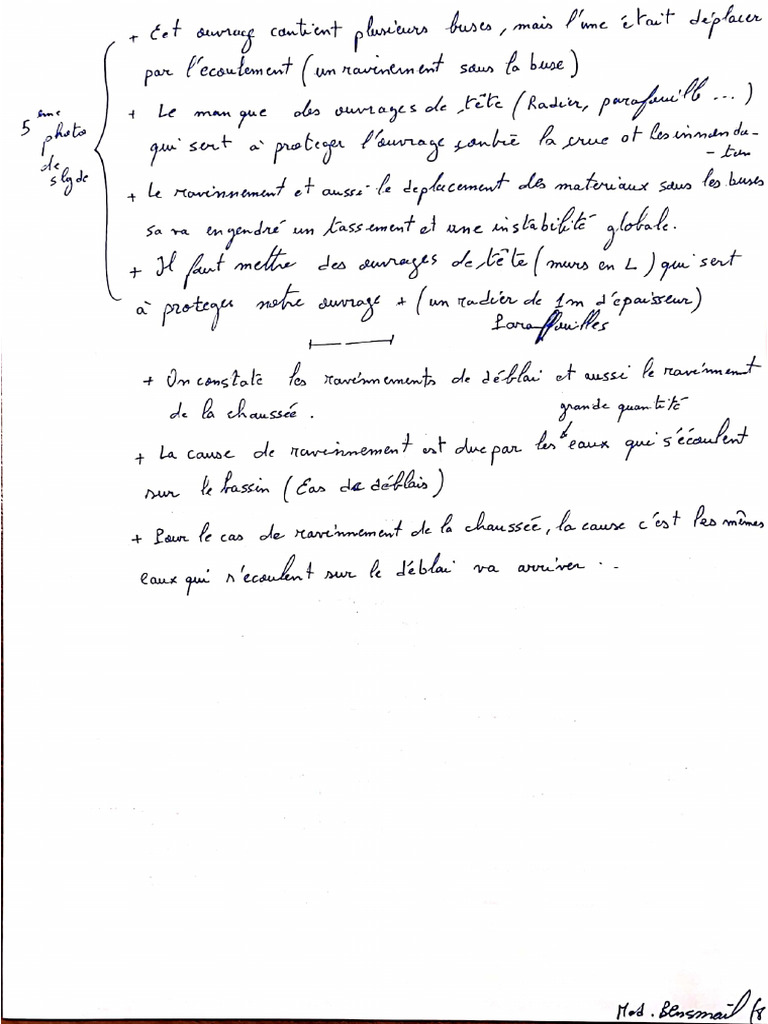 + Cet ouvrage contient plusieurs buses, mais l'une était déplacer
par l'écoulement (un ravinement sous la buse)
5ème photo de slyde
+ Le manque des ouvrages de tête (Radier, parafouille ...)
qui sert à proteger l'ouvrage contre la crue et les innonda-
-tion
+ Le ravinnement et aussi le deplacement des materiaux sous les buses
sa va engendré un tassement et une instabilité globale.
+ Il faut mettre des ouvrages de tête (murs en L) qui sert
à proteger notre ouvrage + (un radier de 1m d'épaisseur)
Parafouilles
+ On constate les ravinnements de déblai et aussi le ravinnement
de la chaussée.
grande quantité
+ La cause de ravinnement est due par les eaux qui s'écoulent
sur le bassin (Cas de déblais)
+ Pour le cas de ravinnement de la chaussée, la cause c'est les mêmes
eaux qui s'écoulent sur le déblai va arriver ..
Med. Bensmail